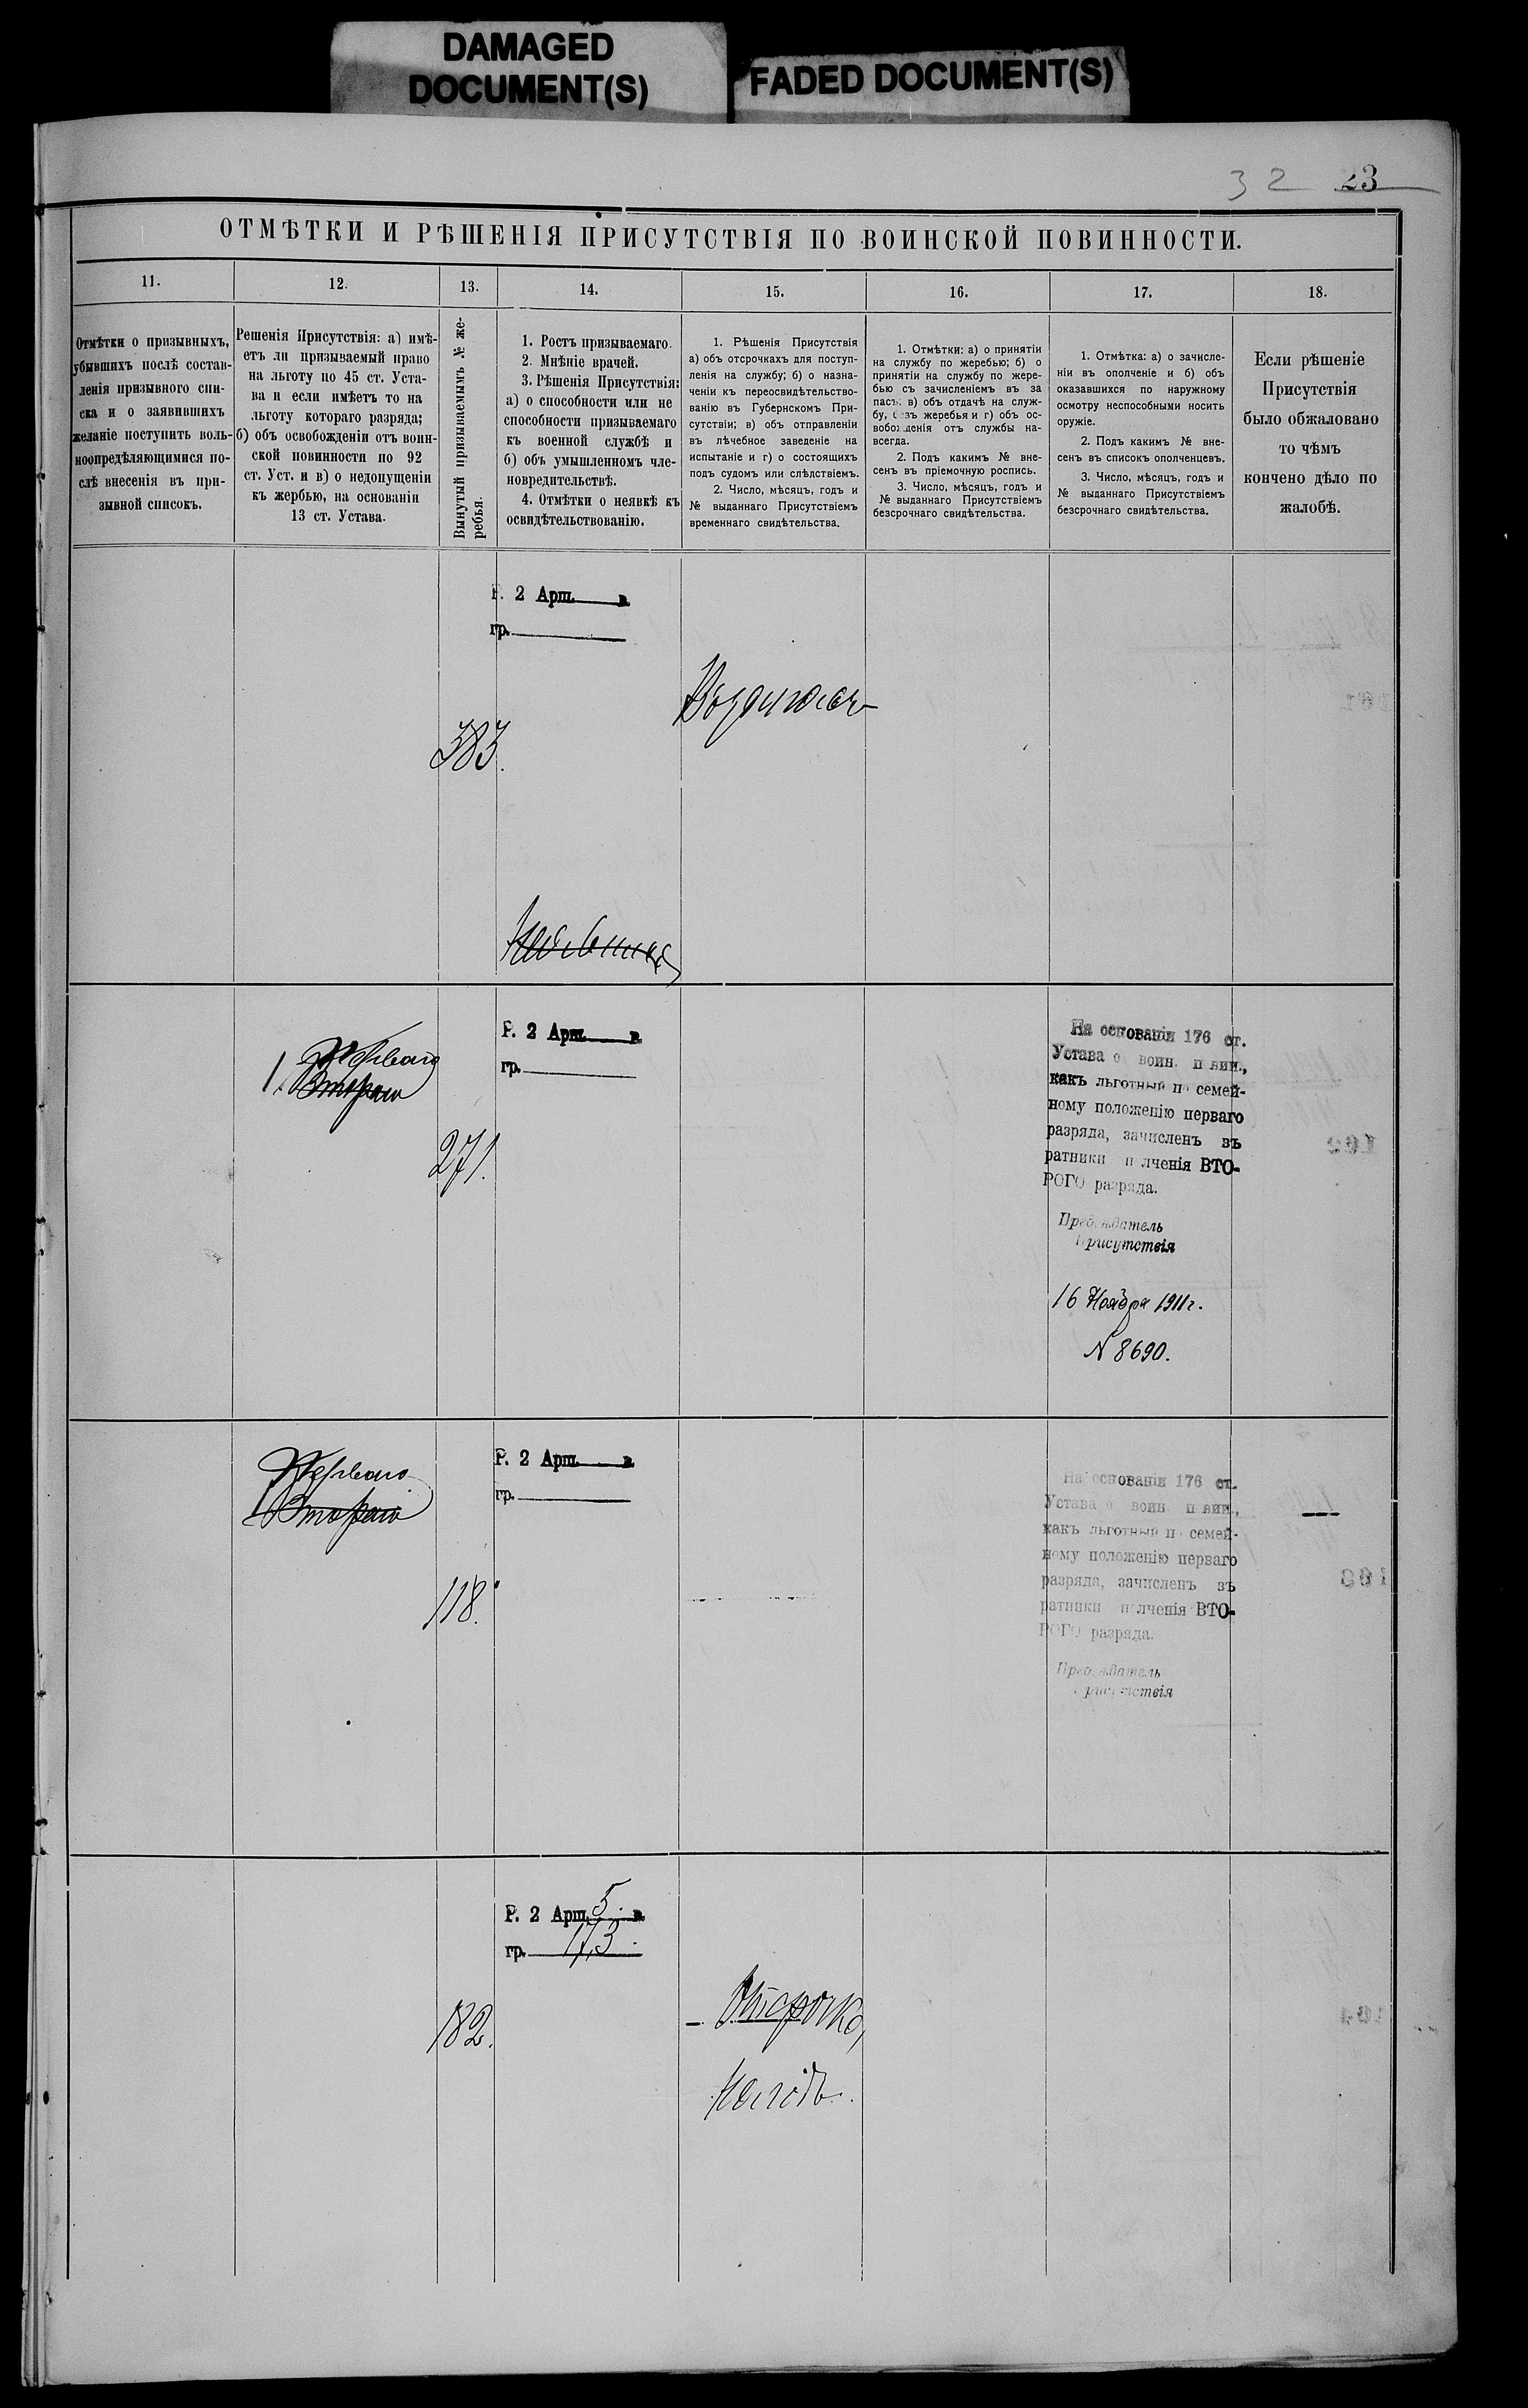 DAMAGED
DOCUMENT(S)
FADED DOCUMENT(S)
32 23
ОТМѢТКИ И РѢШЕНІЯ ПРИСУТСТВІЯ ПО ВОИНСКОЙ ПОВИННОСТИ.
11.
12.
13.
14.
15.
16.
17.
18.
Отмѣтки о призывныхъ,
убывшихъ послѣ состав-
ленія призывного спи-
ска и о заявившихъ
желаніе поступить воль-
ноопредѣляющимися по-
слѣ внесенія въ при-
зывной списокъ.
Решенія Присутствія: а) имѣ-
етъ ли призываемый право
на льготу по 45 ст. Уста-
ва и если имѣетъ то на
льготу котораго разряда;
б) объ освобожденіи отъ воин-
ской повинности по 92
ст. Уст. и в) о недопущеніи
къ жербью, на основаніи
13 ст. Устава.
Вынутый призываемымъ № же-
ребья.
1. Ростъ призываемаго.
2. Мнѣніе врачей.
3. Рѣшенія Присутствія:
а) о способности или не
способности призываемаго
къ военной службѣ и
б) объ умышленномъ чле-
новредительствѣ.
4. Отмѣтки о неявкѣ къ
освидѣтельствованію.
1. Рѣшенія Присутствія
а) объ отсрочкахъ для поступ-
ленія на службу; б) о назна-
ченіи къ переосвидѣтельство-
ванію въ Губернскомъ При-
сутствіи; в) объ отправленіи
въ лѣчебное заведеніе на
испытаніе и г) о состоящихъ
подъ судомъ или слѣдствіемъ.
2. Число, мѣсяцъ, годъ и
№ выданнаго Присутствіемъ
временнаго свидѣтельства.
1. Отмѣтки: а) о принятіи
на службу по жеребью; б) о
принятіи на службу по жере-
бью съ зачисленіемъ въ за
пасъ: в) объ отдачѣ на служ-
бу, безъ жеребья и г) объ ос-
вобожденія отъ службы на-
всегда.
2. Подъ какимъ № вне-
сенъ въ пріемочную роспись.
3. Число, мѣсяцъ, годъ и
№ выданнаго Присутствіемъ
безсрочнаго свидѣтельства.
1. Отмѣтка: а) о зачисле-
ніи въ ополченіе и б) объ
оказавшихся по наружному
осмотру неспособными носить
оружіе.
2. Подъ какимъ № вне-
сенъ въ списокъ ополченцевъ.
3. Число, мѣсяцъ, годъ и
№ выданнаго Присутствіемъ
безсрочнаго свидѣтельства.
Если рѣшеніе
Присутствія
было обжаловано
то чѣмъ
кончено дѣло по
жалобѣ.
Р. 2 Арш. в.
гр.
383.
Р. 2 Арш. в.
гр.
1. Перваго
Втораго
271.
На основаніи 176 ст.
Устава о воин. п вин.,
какъ льготный п семей-
ному положенію перваго
разряда, зачисленъ въ
ратники п лченія ВТО-
РОГО разряда.
Предсѣдатель
Присутствія
16 Ноября 1911 г.
N 8690.
Р. 2 Арш. в.
гр.
Перваго
Втораго
118.
На основаніи 176 ст.
Устава о воин. п вин.,
какъ льготный п семей-
ному положенію перваго
разряда, зачисленъ въ
ратники п лченія ВТО-
РОГО разряда.
Предсѣдатель
Присутствія
Р. 2 Арш. 5. в.
гр. 17,3.
182.
Отсрочка,
на годъ.